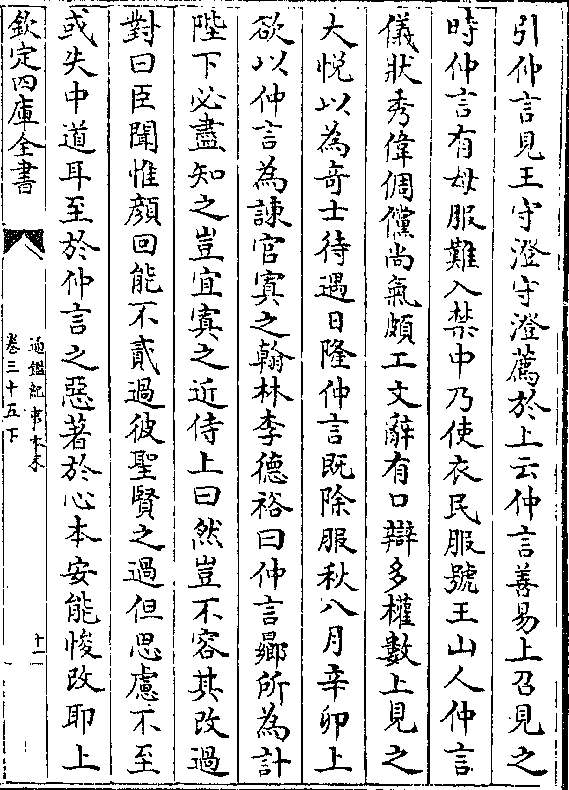 引仲言見王守澄守澄薦於上云仲言善易上召見之
時仲言有母服難入禁中乃使衣民服號王山人仲言
儀狀秀偉倜儻尚氣頗工文辭有口辯多權數上見之
大悅以為奇士待遇日隆仲言既除服秋八月辛卯上
欲以仲言為諫官寘之翰林李德裕曰仲言曏所為計
陛下必盡知之豈宜寘之近侍上曰然豈不容其改過
對曰臣聞惟顔回能不貳過彼聖賢之過但思慮不至
或失中道耳至於仲言之惡著於心本安能悛改耶上
欽定四庫全書
通鑑紀事本末
卷三十五下
十一